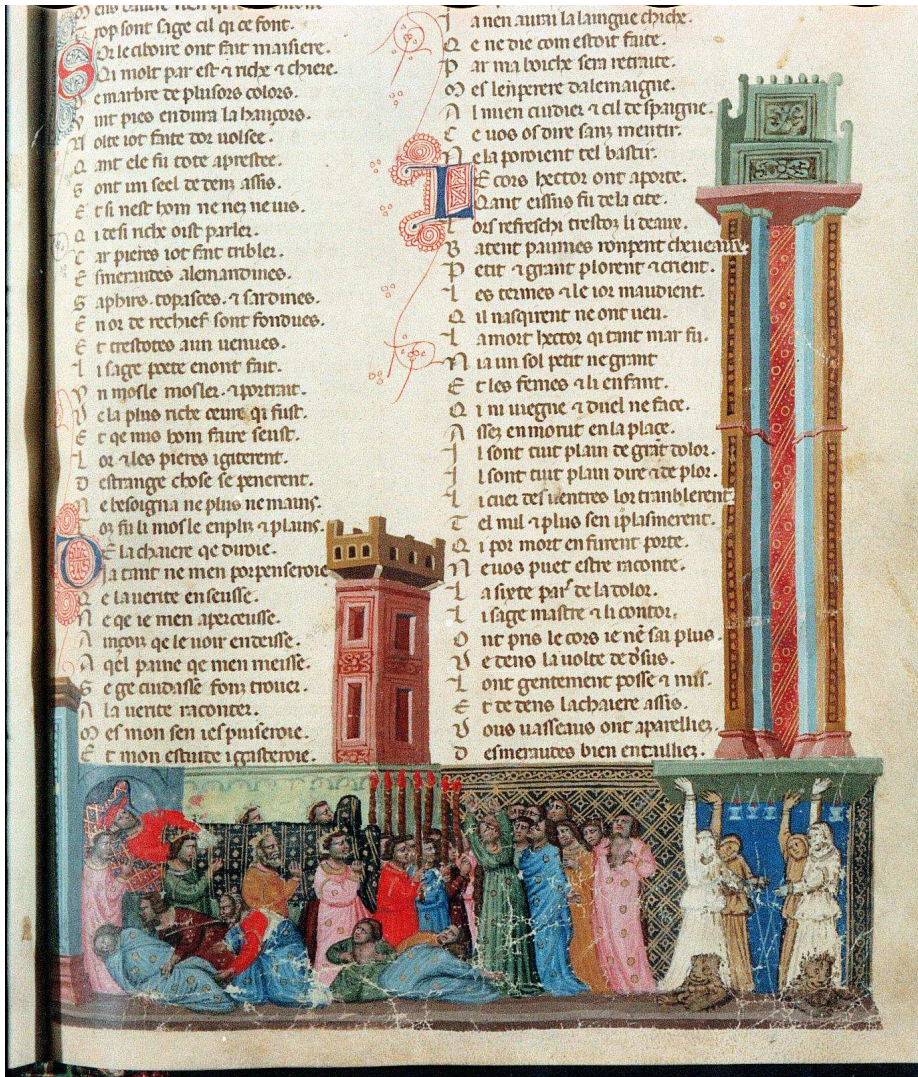 Trop sont sage cil qi ce font.
Sor le ciboire ont fait maisiere.
Qi molt par est ⁊ riche ⁊ chiere.
De marbre de plusors colors.
Vint pies en dura la hauçors.
Volte i ot faite dor volsee.
Qant ele fu tote aprestee.
Sont un seel dedenz assis.
Et si nest hom ne nez ne vis.
Qi de si riche oist parler.
Car pieres i ot fait tribler.
Esmeraudes alemandines.
Saphirs. topasces. ⁊ sardines.
En or de rechief sont fondues.
Et trestotes a un venues.
Li sage poete en ont fait.
Un mosle mosler. ⁊ portrait.
De la plus riche oeure qi fust.
Et qe nus hom faire seust.
Lor ⁊ les pieres i giterent.
Destrange chose se penerent.
Ne besoigna ne plus ne mains.
Tor fu li mosle enpliz ⁊ plains.
De la chaiere qe diroie.
Ja tant ne men porpenseroie
Qe la verite en seusse.
Ne qe ie men aperceusse.
Ainçois qe le voir en deisse.
A qel paine qe men meisse.
Se ge cudasse fonz trouer.
A la verite raconter.
Mes mon sen i espuiseroie.
Et mon estuide i gasteroie.
Ja nen aurai la laingue chiche.
Qe ne die com estoit faite.
Par ma boiche sera retraite.
Mes lenperere dalemaigne.
Al mien cudier ⁊ cil despaigne.
Ce vos os dire sanz mentir.
Ne la poroient tel bastir.
Le cors hector ont aporte.
Qant eissus fu de la cite.
Lors refreschi trestoz li deaus.
Batent paumes ronpent cheueaus.
Petit ⁊ grant plorent ⁊ crient.
Les termes ⁊ le ior maudient.
Qil nasqirent ne ont veu.
La mort hector qi tant mar fu.
Nia un sol petit ne grant
Et les femes ⁊ li enfant.
Qi ni viegne ⁊ duel ne face.
Assez en morut en la place.
Il sont tuit plain de grāt dolor.
Il sont tuit plain dire ⁊ de plor.
Li cuer des ventres lor tranblerent.
Tel mil ⁊ plus sen i plasmerent.
Qi por mort en furent porte.
Ne vos puet estre raconte.
La sixte part de la dolor.
Li sage mastre ⁊ li contor.
Ont pris le cors ie nē sai plus.
Dedens la volte de desus.
Lont gentement posse ⁊ mis.
Et dedens la chaiere assis.
Dous vasseaus ont aparelliez.
Desmeraudes bien entailliez.